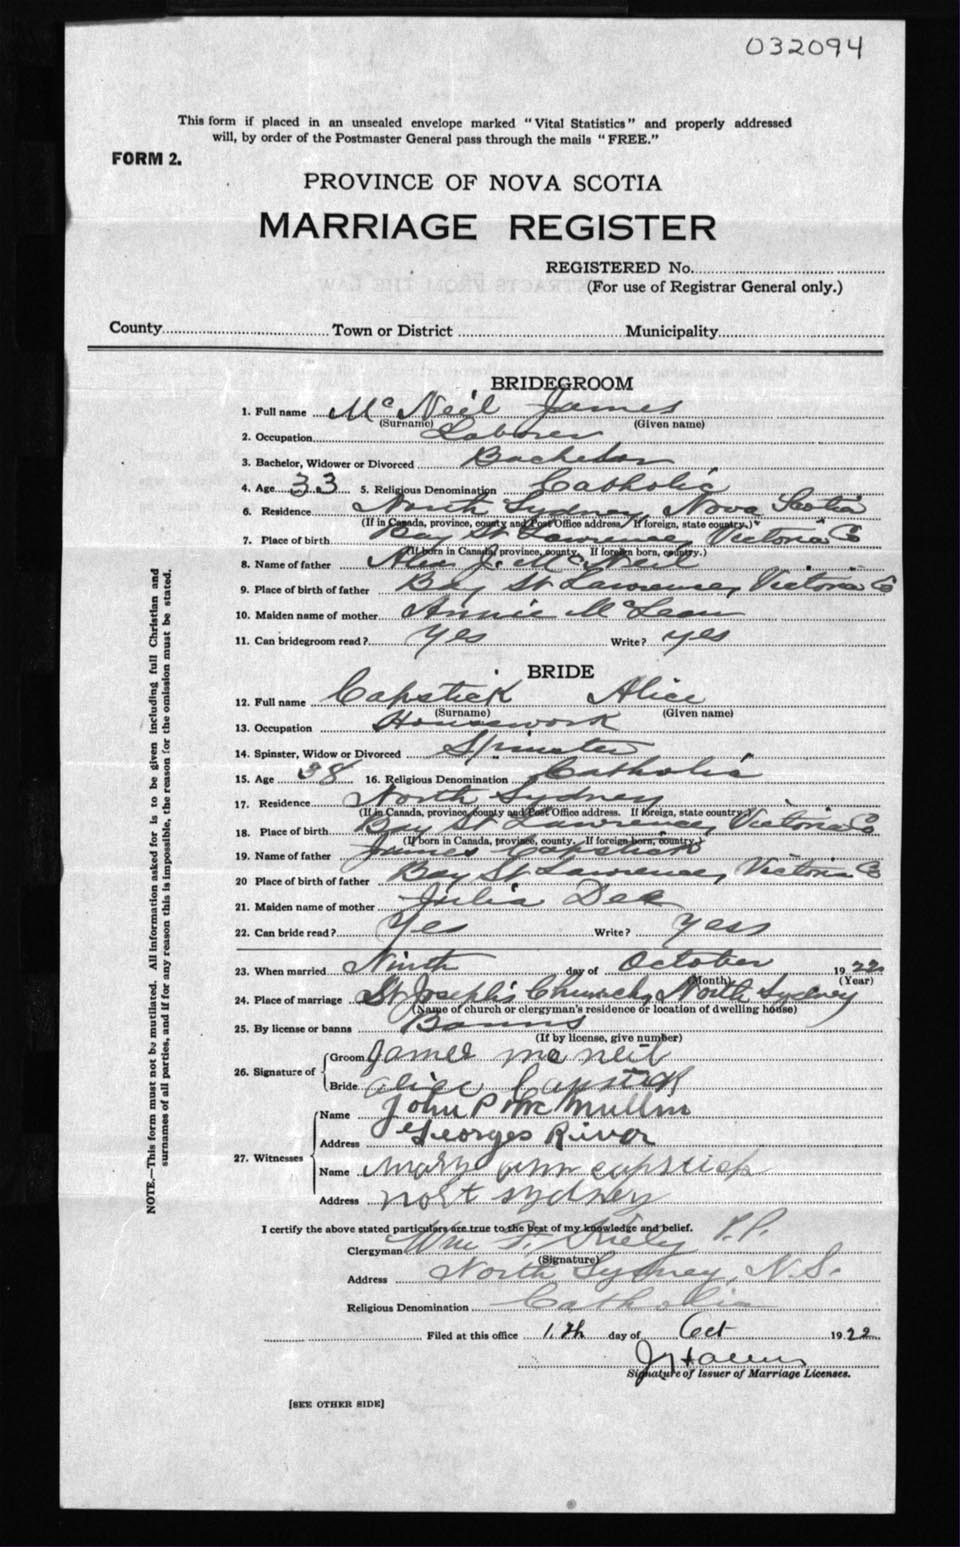 032094
This form if placed in an unsealed envelope marked "Vital Statistics" and properly addressed
will, by order of the Postmaster General pass through the mails "FREE."
FORM 2.
PROVINCE OF NOVA SCOTIA
MARRIAGE REGISTER
REGISTERED No.
(For use of Registrar General only.)
County Town or District Municipality
BRIDEGROOM
1. Full name McNeil James
(Surname) (Given name)
2. Occupation Laborer
3. Bachelor, Widower or Divorced Bachelor
4. Age 33 5. Religious Denomination Catholic
6. Residence North Sydney, Nova Scotia
(If in Canada, province, county and Post Office address. If foreign, state country.)
7. Place of birth Bay St Lawrence, Victoria Co
(If born in Canada, province, county. If foreign born, country.)
8. Name of father Alex J. McNeil
9. Place of birth of father Bay St Lawrence, Victoria Co
10. Maiden name of mother Annie McLean
11. Can bridegroom read? Yes Write? yes
BRIDE
12. Full name Capstick Alice
(Surname) (Given name)
13. Occupation Housework
14. Spinster, Widow or Divorced Spinster
15. Age 38 16. Religious Denomination Catholic
17. Residence North Sydney
(If in Canada, province, county and Post Office address. If foreign, state country.)
18. Place of birth Bay St Lawrence, Victoria Co
(If born in Canada, province, county. If foreign born, country)
19. Name of father James Capstick
20 Place of birth of father Bay St Lawrence, Victoria Co
21. Maiden name of mother Julia Dee
22. Can bride read? Yes Write? yess
23. When married Ninth day of October 1922
(Month) (Year)
24. Place of marriage St Joseph's Church, North Sydney
(Name of church or clergyman's residence or location of dwelling house)
25. By license or banns Banns
(If by license, give number)
26. Signature of Groom James mcneil
Bride alice Capstick
27. Witnesses Name John P McMullin
Address Georges River
Name Mary ann capstick
Address nort sydney
I certify the above stated particulars are true to the best of my knowledge and belief.
Clergyman Wm F. Kiely P.P.
(Signature)
Address North Sydney, N.S.
Religious Denomination Catholic
Filed at this office day of Oct 1922
Signature of Issuer of Marriage Licenses.
[SEE OTHER SIDE]
NOTE.—This form must not be mutilated. All information asked for is to be given including full Christian and
surnames of all parties, and if for any reason this is impossible, the reason for the omission must be stated.